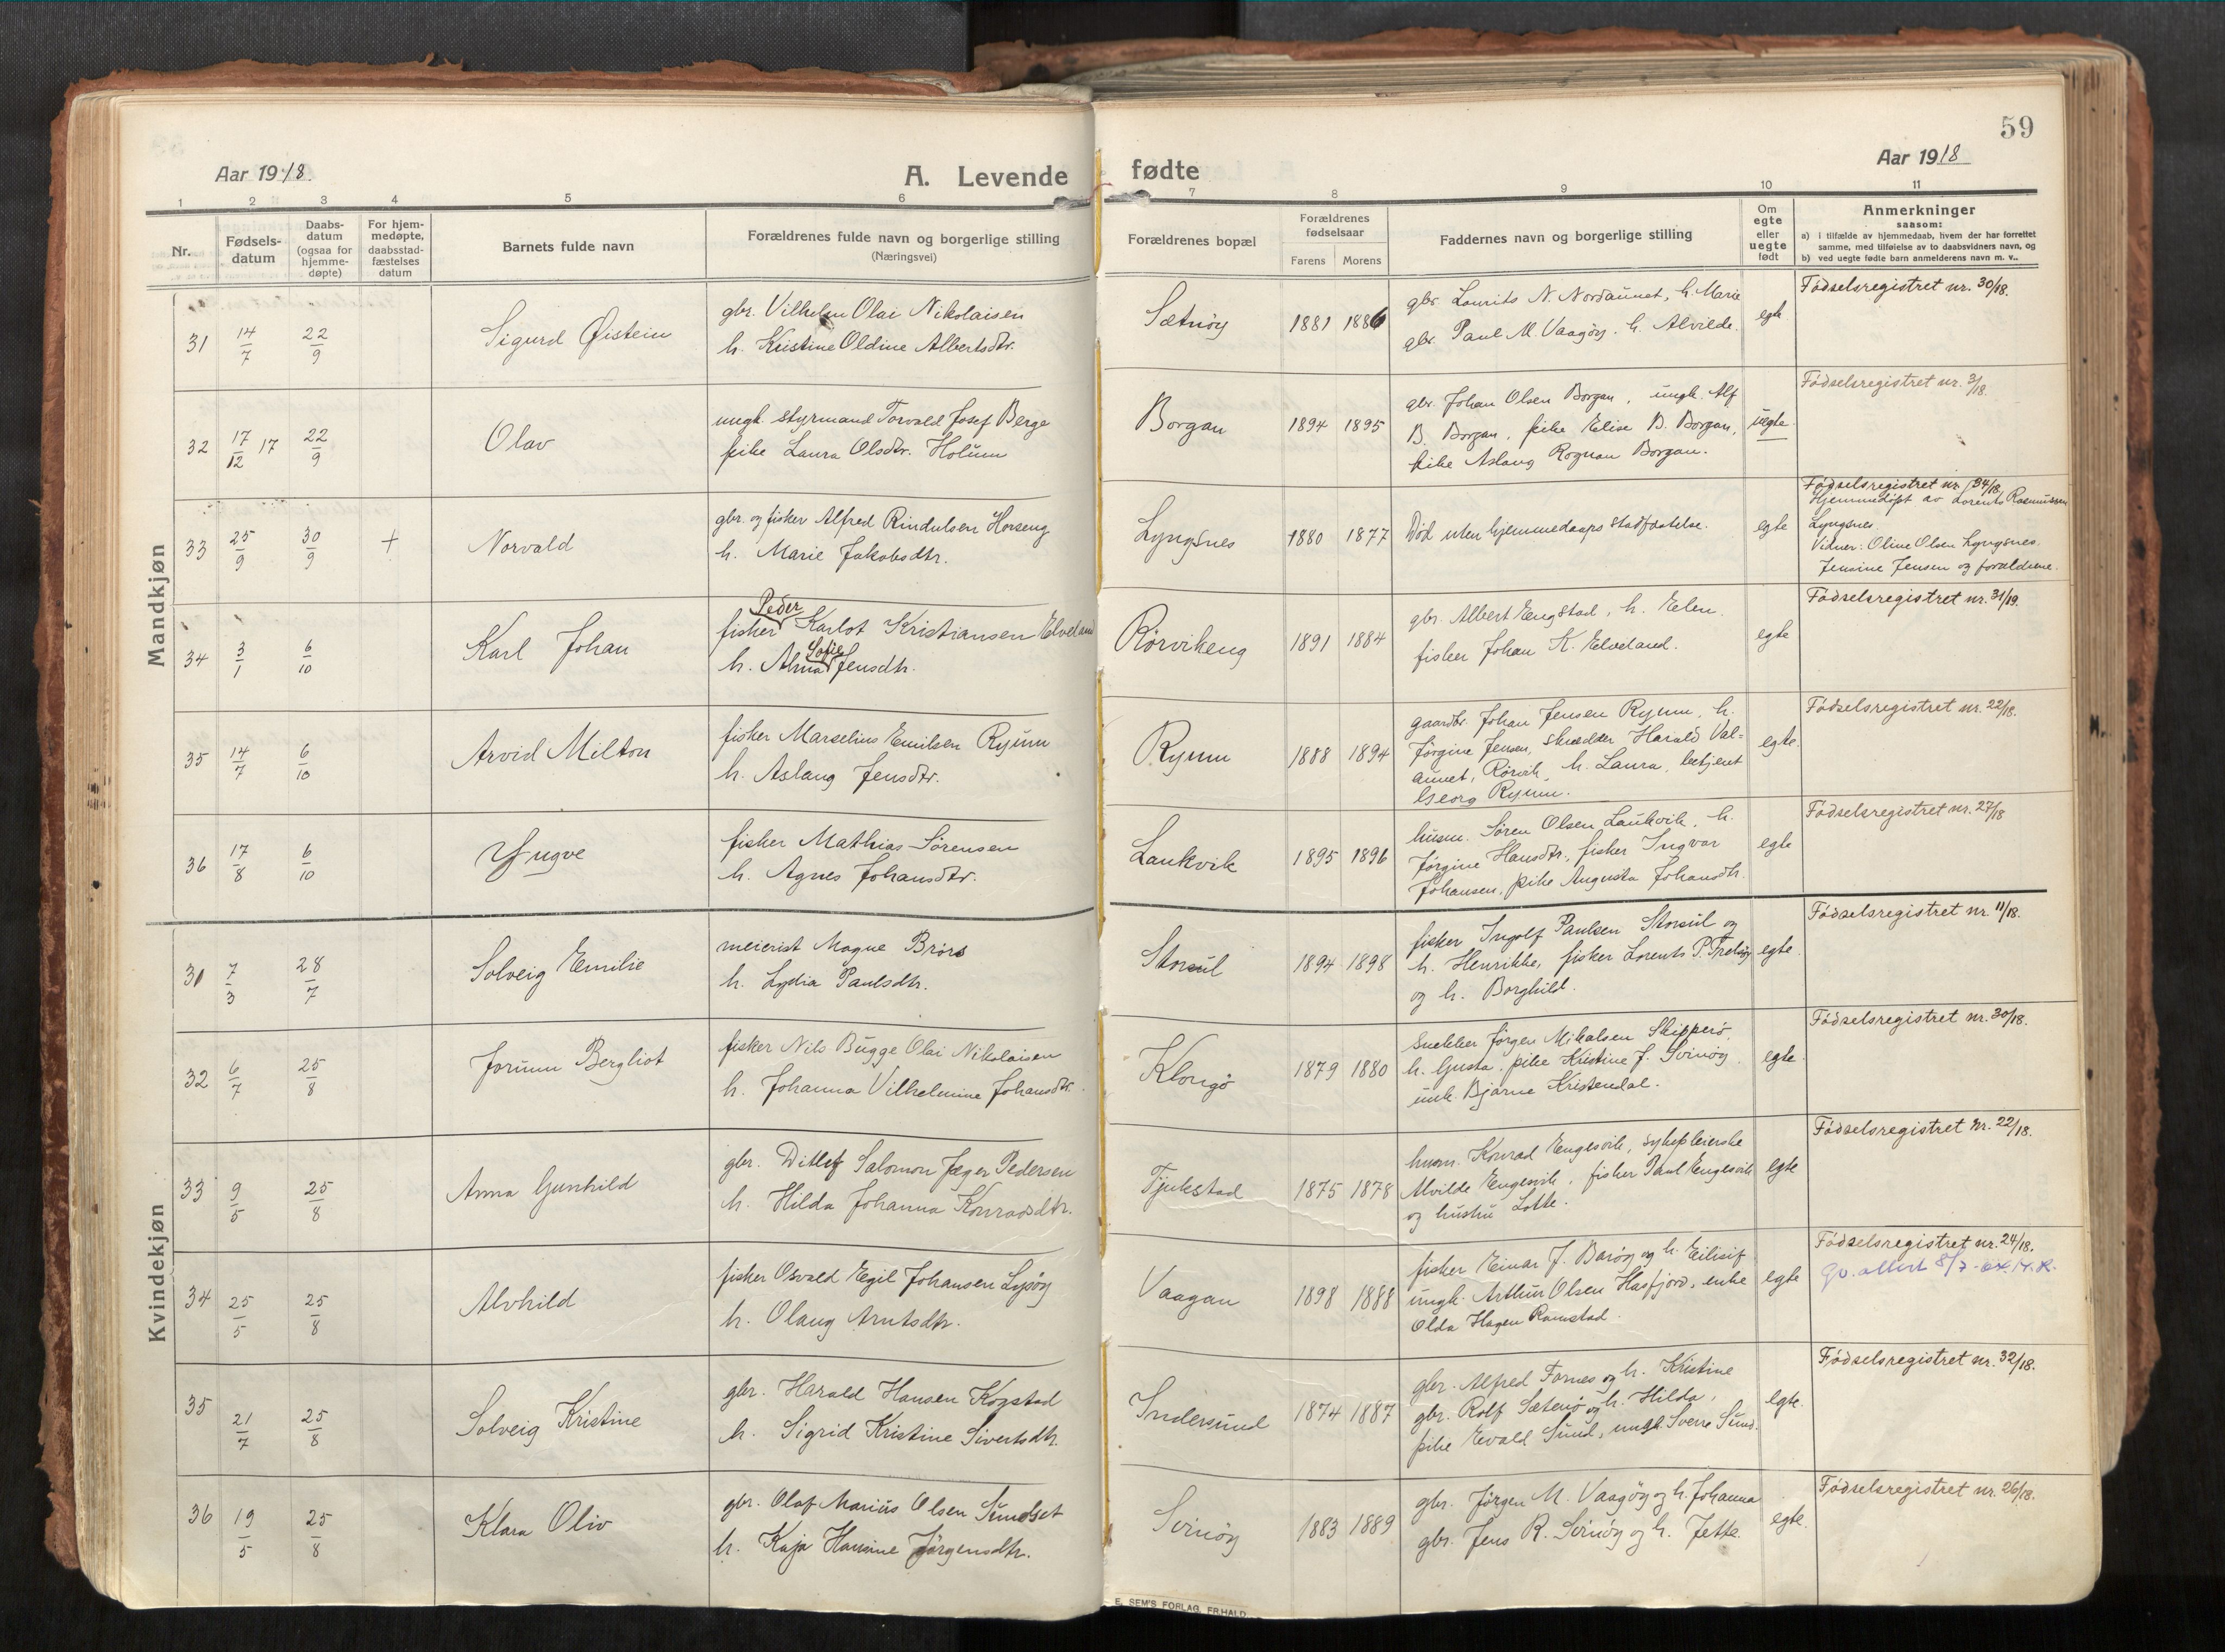 59
Aar 1918.
A. Levende fødte
Aar 1918
1 2 3 4 5 6 7 8 9 10 11
Nr.
Fødsels-
datum
Daabs-
datum
(ogsaa for
hjemme-
døpte)
For hjem-
medøpte,
daabsstad-
fæstelses
datum
Barnets fulde navn
Forældrenes fulde navn og borgerlige stilling
(Næringsvei)
Forældrenes bopæl
Forældrenes
fødselsaar
Farens Morens
Faddernes navn og borgerlige stilling
Om
egte
eller
uegte
født
Anmerkninger
saasom:
a) i tilfælde av hjemmedaab, hvem der har forrettet
samme, med tilføielse av to daabsvidners navn, og
b) ved uegte fødte barn anmelderens navn m. v..
Mandkjøn
31 14/7 22/9 Sigurd Øistein
gbr. Vilhelm Olai Nikolaisen
h. Kristine Oldine Albertsdtr.
Sætnöy 1881 1886
gbr. Laurits N. Nordaunet, h. Marie
gbr. Paul M. Vaagöy. h. Alvilde.
egte
Födselsregistret nr. 30/18.
32 17/12 17 22/9 Olav
ungk. styrmand Torvald Josef Berge
pike Laura Olsdtr. Holum
Borgan 1894 1895
gbr. Johan Olsen Borgan, ungk. Alf
B. Borgan, pike Elise B. Borgan,
pike Aslaug Rognan Borgan.
uegte.
Födselsregistret nr. 3/18.
33 25/9 30/9 + Norvald
gbr. og fisker Alfred Rindulsen Horseng
h. Marie Jakobsdtr.
Lyngsnes 1880 1877
Död uten hjemmedaaps stadfæstelse.
egte
Födselsregistret nr. 34/18.
Hjemmedöpt av Lorents Rasmussen
Lyngsnes.
Vidner: Oline Olsen Lyngsnes.
Jensine Jensen og forældrene.
34 3/1 6/10 Karl Johan
Peder
fisker Karlot Kristiansen Elveland
Sofie
h. Alma Jensdtr.
Rörvikeng 1891 1884
gbr. Albert Engstad, h. Elen.
fisker Johan K. Elveland.
egte
Födselsregistret nr. 31/19.
35 14/7 6/10 Arvid Milton
fisker Marselius Emilsen Ryum
h. Aslaug Jensdtr.
Ryum 1888 1894
gaardbr. Johan Jensen Ryum, h.
Jörgine Jensen, skrædder Harald Val=
aunet, Rörvik, h. Laura, betjent
Georg Ryum.
egte.
Födselsregistret nr. 22/18.
36 17/8 6/10 Yngve
fisker Mathias Sörensen
h. Agnes Johansdtr.
Laukvik 1895 1896
husm. Sören Olsen Laukvik, h.
Jörgine Hansdtr., fisker Ingvar
Johansen, pike Augusta Johansdtr.
egte
Födselsregistret nr. 27/18
Kvindekjøn
31 7/3 28/7 Solveig Emilie
meierist Magne Brörs
h. Lydia Paulsdtr.
Storsul 1894 1898
fisker Ingolf Paulsen Storsul og
h. Henrikke, fisker Lorents P.
og h. Borghild.
egte.
Födselsregistret nr. 11/18.
32 6/7 25/8 Jorunn Bergliot
fisker Nils Bugge Olai Nikolaisen
h. Johanna Vilhelmine Johansdtr.
Klongö 1879 1880
snekker Jörgen Mikalsen Skipperö,
h. Gusta, pike Kristine J. Svinöy
unk. Bjarne Kristendal.
egte.
Födselsregistret nr. 30/18.
33 9/5 25/8 Anna Gunhild
gbr. Ditlef Salomon Jæger Pedersen
h. Hilda Johanna Konradsdtr.
Tjukstad 1875 1878
husm. Konrad Engesvik, sykepleierske
Alvilde Engesvik, fisker Paul Engesvik
og hustru Lotte.
egte
Födselsregistret nr. 22/18.
34 25/5 25/8 Alvhild
fisker Osvald Egil Johansen Lysöy
h. Olaug Arntsdtr.
Vaagan 1898 1888
fisker Einar J. Baröy og h. Eilisif
ungk. Arthur Olsen Hasfjord, enke
Olda Hagen Ramstad.
egte
Födselsregistret nr. 24/18.
35 21/7 25/8 Solveig Kristine
gbr. Harald Hansen Kogstad
h. Sigrid Kristine Sivertsdtr.
Indersund 1874 1887
gbr. Alfred Fornes og h. Kristine
gbr. Rolf Sæternö og h. Hilda,
pike Evald Sund, ungk. Sverre Sund.
egte.
Födselsregistret nr. 32/18.
36 19/5 25/8 Klara Oliv
gbr. Olaf Marius Olsen Sundset
h. Kaja Hansine Jörgensdtr.
Svinöy 1883 1889
gbr. Jörgen M. Vaagöy og h. Johanna
gbr. Jens R. Svinöy og h. Jette.
egte.
Födselsregistret nr. 26/18.
E. SEM'S FORLAG, FR.HALD